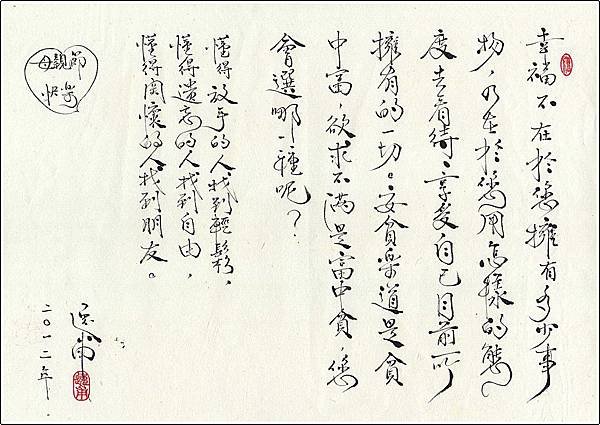 幸福不在於您擁有多少事
物，乃在於您用怎樣的態
度去看待、享受自己目前所
擁有的一切。安貧樂道是貧
中富，欲求不滿是富中貧，您
會選哪一種呢？
懂得放手的人找到輕鬆，
懂得遺忘的人找到自由，
懂得關懷的人找到朋友。
母親節
二〇一二年